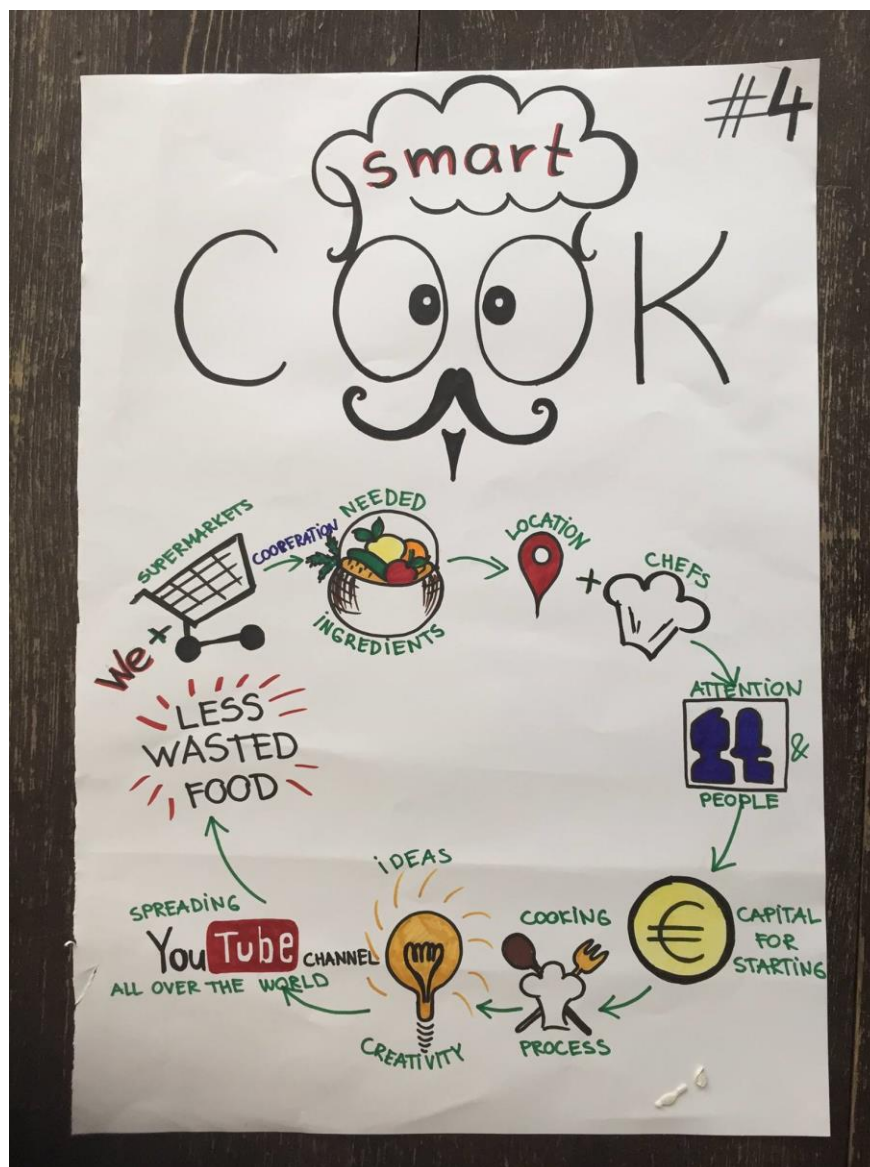 #4
smart
COOK
We + SUPERMARKETS
COOBERATION
NEEDED
INGREDIENTS
LOCATION
+
CHEFS
ATTENTION
&
PEOPLE
€
CAPITAL
FOR
STARTING
COOKING
PROCESS
iDEAS
CREATIVITY
SPREADING
YouTube CHANNEL
ALL OVER THE WORLD
LESS
WASTED
FOOD